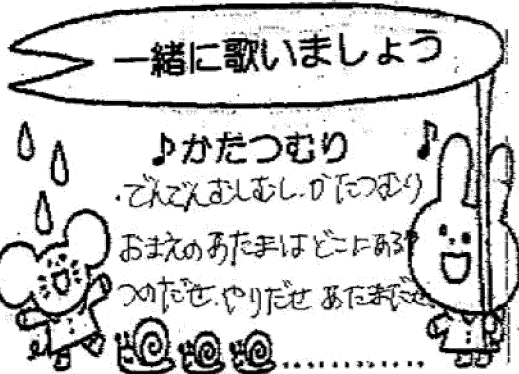 一緒に歌いましょう
♪かたつむり
・でんでんむしむし、かたつむり
おまえのあたまはどこにある
つのだせ、やりだせ あたまだせ